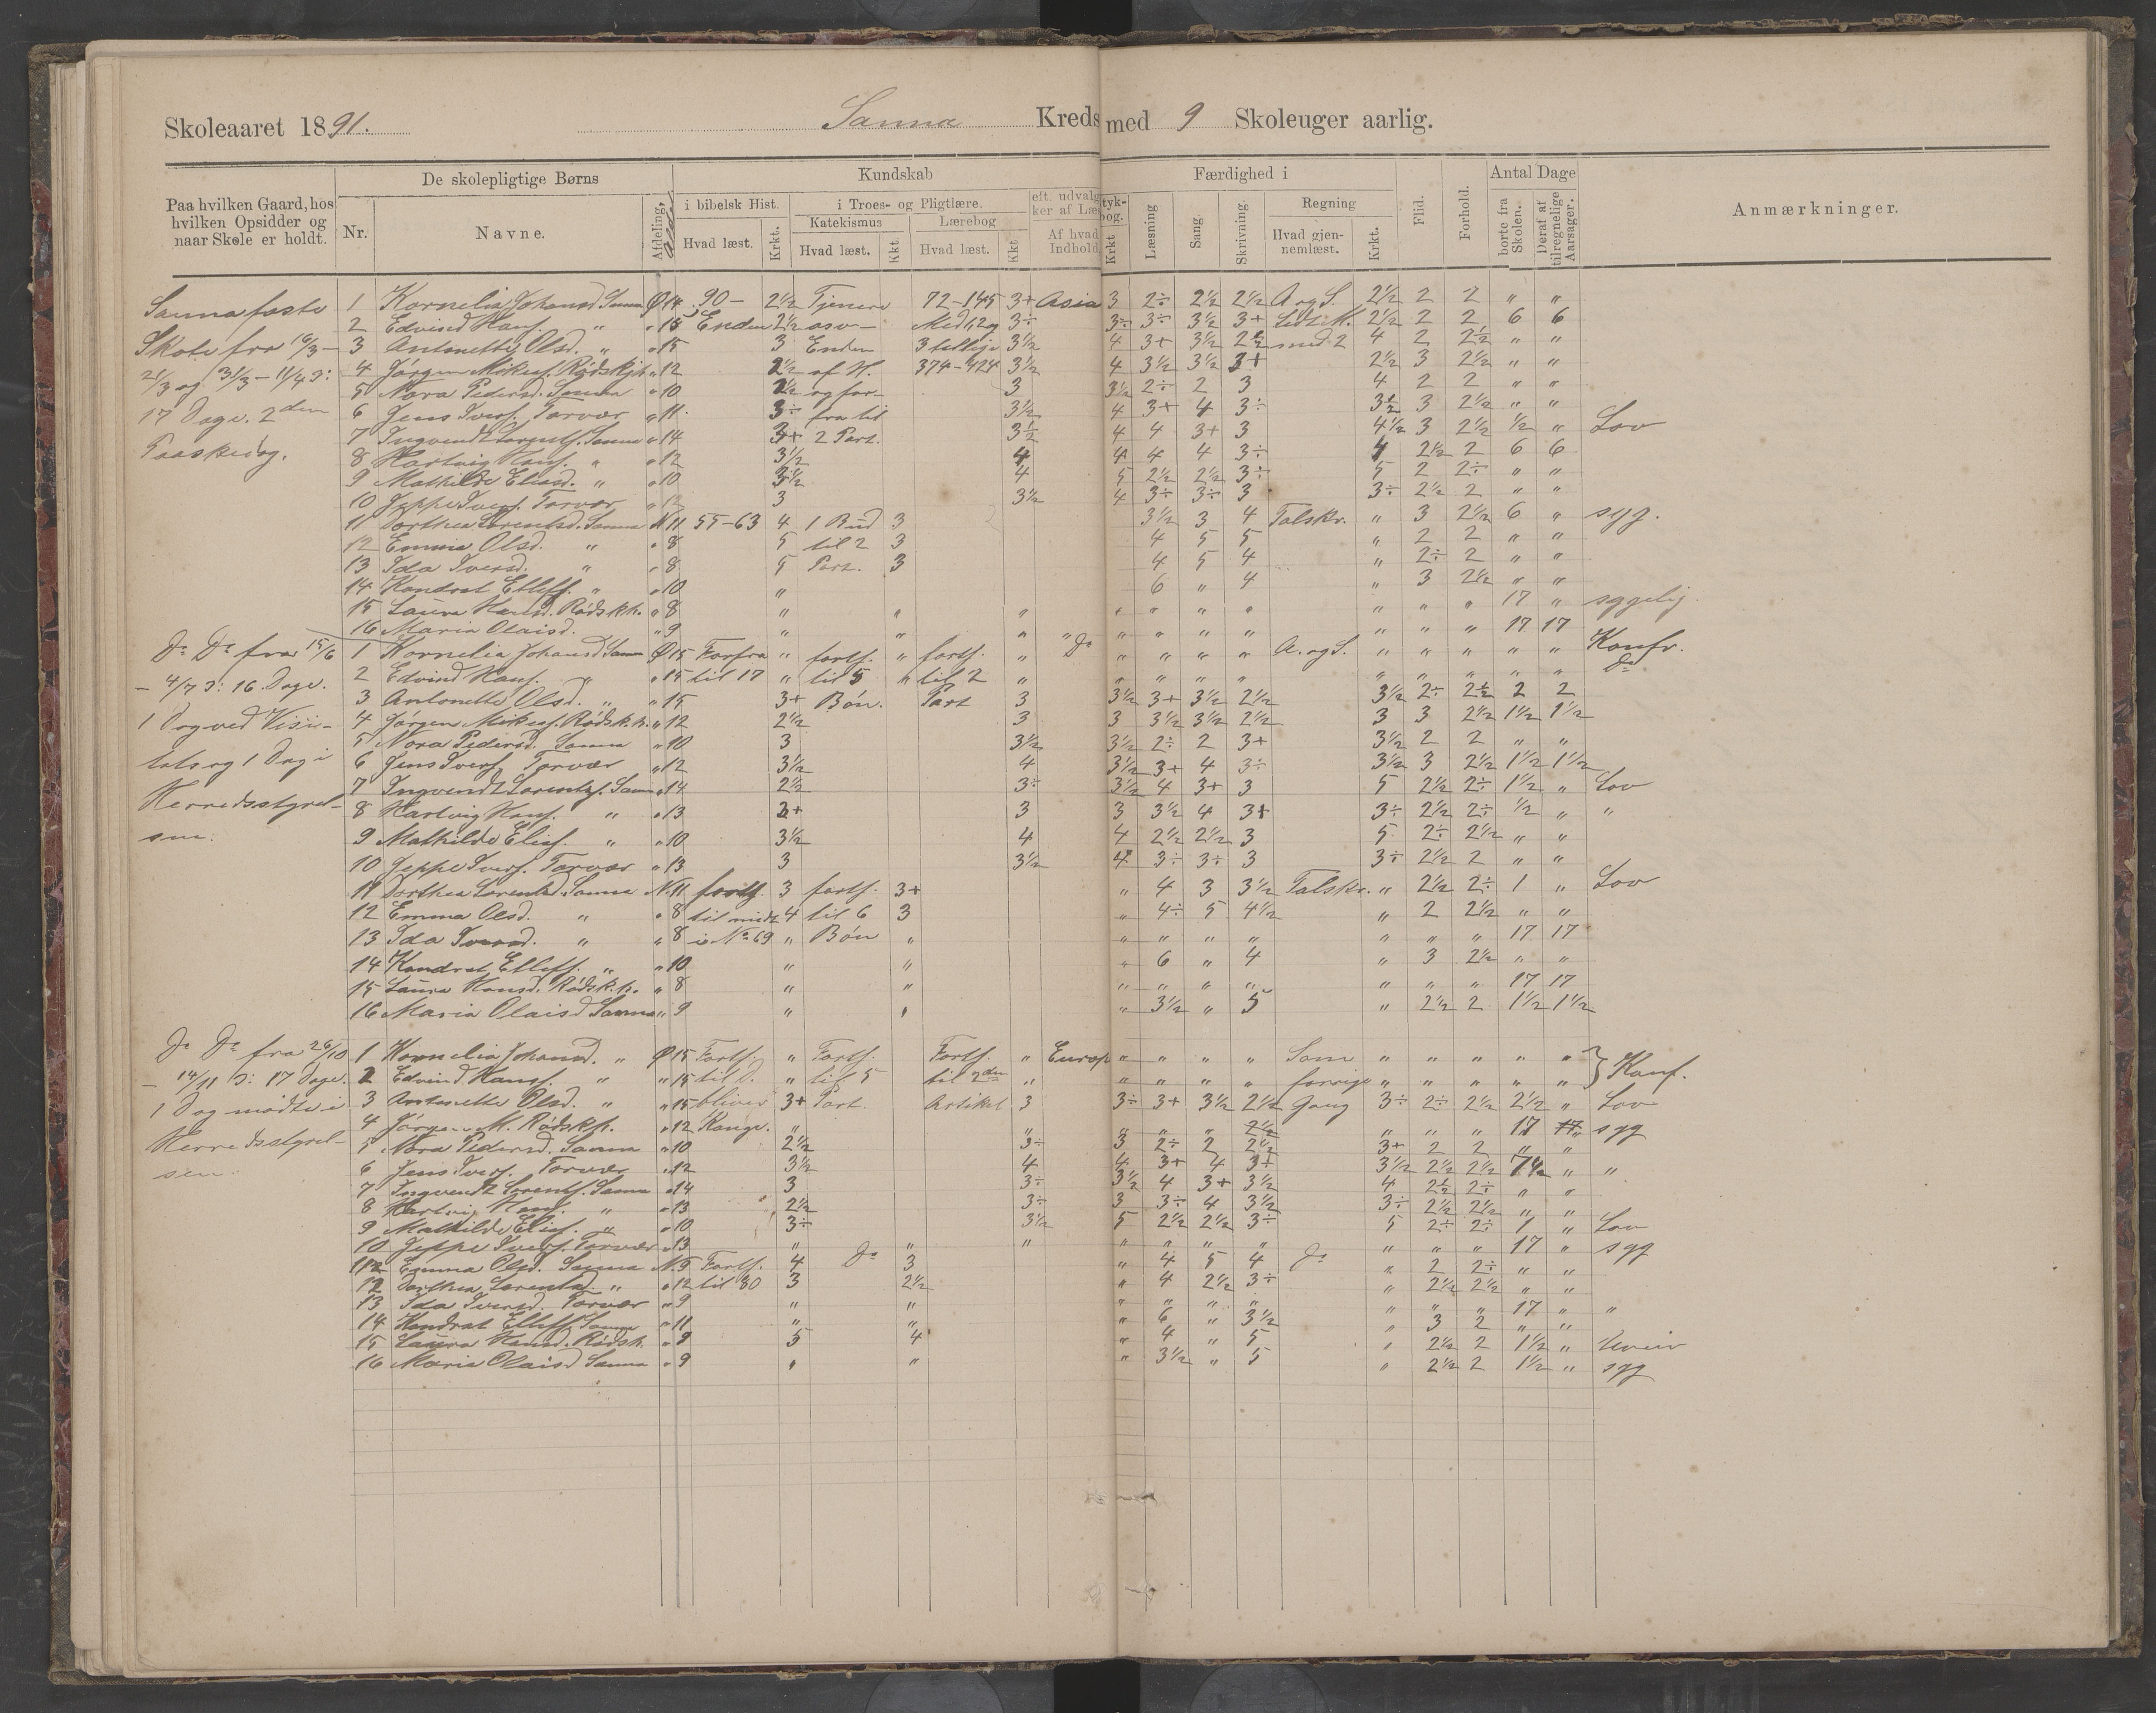 Skoleaaret 1891. Sanna Kreds med 9 Skoleuger aarlig.
Paa hvilken Gaard, hos hvilken Opsidder og naar Skole er holdt.
De skolepligtige Børns
Nr. Navne.
Afdeling.
Kundskab
i bibelsk Hist.
Hvad læst. Krkt.
i Troes- og Pligtlære.
Katekismus Lærebog
Hvad læst. Kkt Hvad læst. Kkt
eft. udvalg ker af Læs
Af hvad Indhold
tyk- bog.
Krkt
Færdighed i
Læsning Sang. Skrivning.
Regning
Hvad gjennemlæst. Krkt.
Flid. Forhold.
Antal Dage
borte fra Skolen. Deraf af tilregnelige Aarsager.
Anmærkninger.
Sanna faste
Skole fra 16/3 —
21/3 og 31/3 — 11/4 ɔ:
17 Dage. 2den
Paaskedag.
1 Kornelia Johansd. Sanna Ø 14 90 — 2½ Tjenere 72-145 3+ Asia 3 2÷ 2½ 2½ A. og S. 2½ 2 2 " "
2 Edvind Hansf. " " 15 Enden 2½ Med 12 og 3÷ 3÷ 3÷ 3½ 3+ 2½ 2 2 6 6
3 Antonette Olsd. " " 15 3 Enden 3 3½ 4 3+ 3½ 2½ med 2 4 2 2½ " "
4 Jørgen Mikisf. Rødskjh. " 12 2½ af H. 374-424 3½ 4 3½ 3½ 3+ 2½ 3 2½ " "
5 Nora Pedersd. Sanna " 10 2½ og for- 3 3½ 2÷ 2 3 4 2 2 " "
6 Jens Iversf. Torvær " 11 3÷ fra til 3½ 4 3+ 4 3÷ 3½ 3 2½ " "
7 Ingvardt Lorentsf. Sanna " 14 3+ 2 Part. 3½ 4 4 3+ 3 4½ 3 2½ ½ " Lov
8 Hartvig Hansf. " " 12 3½ 4 4 4 4 3÷ 4 2½ 2 6 6
9 Mathilde Eliasd. " " 10 3½ 4 5 2½ 2½ 3÷ 5 2 2÷ " "
10 Jeppe Iversf. Torvær " 12 3 3½ 4 3÷ 3÷ 3 3÷ 2½ 2 " "
11 Dorthea Lorentsd. Sanna N 11 55-63 4 1 Bud 3 3½ 3 4 Talskr. " 3 2½ 6 " syg.
12 Emma Olsd. " " 8 5 til 2 3 4 5 5 " 2 2 " "
13 Ida Iversd. " " 8 5 Part. 3 4 5 4 " 2÷ 2 " "
14 Kondrat Elleff. " " 10 " 6 " 4 " 3 2½ " "
15 Laura Hansd. Rødskh. " 8 " " " " " " " " " " 17 " sygelig
16 Maria Olaisd. " 9 " " " " " " " " " " 17 17
Do Do fra 15/6
— 4/7 ɔ: 16 Dage.
1 Dag ved Visi-
tats og 1 Dag i
Herredsstyrel-
sen.
1 Kornelia Johansd. Sanna Ø 15 Forfra " forts. " forts. " Do " " " " A. og S. " " " " " Konfr.
2 Edvind Hansf. " " 15 til 17 " til 5 " til 2 " " " " " " " " " " Do
3 Antonette Olsd. " " 15 3+ Bøn. Part 3 3½ 3+ 3½ 2½ 3½ 2÷ 2½ 2 2
4 Jørgen Mikisf. Rødskh. " 12 2½ 3 3 3½ 3½ 2½ 3 3 2½ 1½ 1½
5 Nora Pedersd. Sanna " 10 3 3½ 3½ 2÷ 2 3+ 3½ 2 2 " "
6 Jens Iversf. Torvær " 12 3½ 4 3½ 3+ 4 3÷ 3½ 3 2½ 1½ 1½
7 Ingvardt Lorentsf. Sanna " 14 2½ 3÷ 3½ 4 3+ 3 5 2½ 2÷ 1½ " Lov
8 Hartvig Hansf. " " 13 3+ 3 3 3½ 4 3+ 3÷ 2½ 2÷ ½ " "
9 Mathilde Elisf. " " 10 3½ 4 4 2½ 2½ 3 5 2÷ 2½ " "
10 Jeppe Iversf. Torvær " 13 3 3½ 4 3÷ 3÷ 3 3÷ 2½ 2 " "
11 Dorthea Lorentsd. Sanna N. 11 forts. 3 forts. 3+ " 4 3 3½ Talskr. " 2½ 2÷ 1 " Lov
12 Emma Olsd. " " 8 til midt 4 til 6 3 " 4÷ 5 4½ " 2 2½ " "
13 Ida Iversd. " " 8 i No 69 " Bøn " " " " " " " " 17 17
14 Kondrat Elleff. " " 10 " " " 6 " 4 " 3 2½ " "
15 Laura Hansd. Rødskh. " 8 " " " " " " " " " 17 17
16 Maria Olaisd Sanna " 9 " " " 3½ " 5 " 2½ 2 1½ 1½
Do Do fra 26/10
— 14/11 ɔ: 17 Dage.
1 Dag mødte i
Herredsstyrel-
sen.
1 Kornelia Johansd. " Ø 15 Forts. " Forts. Forts. " Europ " " " " Som " " " " " } Konf.
2 Edvind Hansf. " " 15 til D. " til 5 til 2den " " " " " forrige " " " " "
3 Antonette Olsd. " " 15 bliver 3+ Part. Artikel 3 3÷ 3+ 3½ 2½ Gang 3÷ 2÷ 2½ 2½ " Lov
4 Jørgen M. Rødskh. " 12 Konge. " " " " " 2½ " " " 17 17 " syg
5 Nora Pedersd. Sanna " 10 2½ 3÷ 3 2÷ 2 2½ 3+ 2 2 " "
6 Jens Iversf. Torvær " 12 3½ 4 4 3+ 4 3+ 3½ 2½ 2½ 7½ " "
7 Ingvardt Lorentsf. Sanna " 14 3 3÷ 3½ 4 3+ 3½ 4 2½ 2÷ " "
8 Hartvig Hansf. " " 13 2½ 3÷ 3 3÷ 4 3½ 3÷ 2½ 2½ " "
9 Mathilde Elisf. " " 10 3÷ 3½ 5 2½ 2½ 3÷ 5 2÷ 2÷ 1 " Lov
10 Jeppe Iversf. Torvær " 13 " " " " " " " " " " 17 " syg
11 Emma Olsd. Sanna N. 9 Forts. 4 Do 3 " 4 5 4 Do " 2 2÷ " "
12 Dorthea Lorentsd. " " 12 til 80 3 2½ " 4 2½ 3÷ " 2½ 2½ " "
13 Ida Iversd. Torvær " 9 " " " " " " " " " 17 " "
14 Kondrat Elleff. Sanna " 11 " " " 6 " 3½ " 3 2 " "
15 Laura Hansd. Rødsk. " 9 5 4 " 4 " 5 " 2½ 2 1½ " Uveir
16 Maria Olaisd Sanna " 9 " " " 3½ " 5 " 2½ 2 1½ " syg